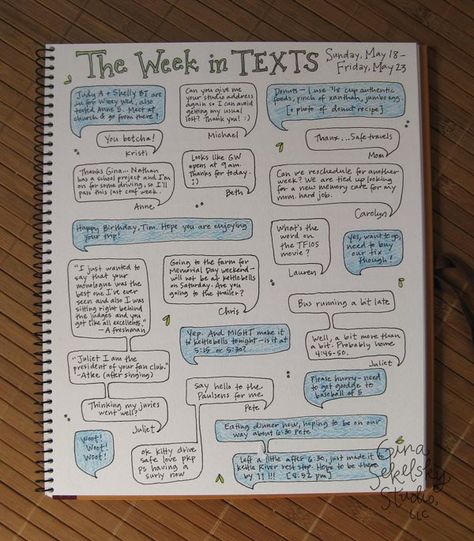 The Week in TEXTS
Sunday, May 18 -
Friday, May 23
Judy A + Shelly BT are
in for Wooly Wed, also
texted Anne S. Meet at
church & go from there?
You betcha!
Kristi
Can you give me
your studio address
again so I can avoid
getting my usual
lost? Thank you! :)
Michael
Donuts - I use 1/8 cup authentic
foods, pinch of xanthan, jumbo egg.
[+ photo of donut recipe]
Thanx... Safe travels
Mom
Thanks Gina... Nathan
has a school project and I'm
on for some driving, so I'll
pass this last conf week.
Anne
Looks like GW
opens at 9 am.
Thanks for today.
:)
Beth
Can we reschedule for another
week? We are tied up looking
for a new memory care for my
mom. hard job.
Carolyn
Happy Birthday, Tim. Hope you are enjoying
your trip!
What's the
word on
the TFIOS
movie?
Lauren
Yes, want to go
need to buy
our tix
though!
"I just wanted to
say that your
monologue was the
best one I've ever
seen and also I was
sitting right behind
the judges and you
got like all excellents."
- A freshman
"Juliet I am the
president of your fan club."
- Atlee (after singing)
Thinking my juries
went well?
Juliet
Woot!
Woot!
Woot!
Going to the farm for
Memorial Day weekend -
will not be at kettlebells
on Saturday. Are you
going to the trailer?
Chris
Yep. And MIGHT make it
to kettlebells tonight - is it at
5:15 or 5:30?
Bus running a bit late
Well, a bit more than
a bit. Probably home
4:45-50.
Juliet
Please hurry - need
to get goodie to
baseball at 5
Say hello to the
Paulsens for me.
Pete
ok kitty drive
safe love pkp
ps having a
surly now
Eating dinner now, hoping to be on
our way about 6:30 Pete
Left a little after 6:30, just made it
Kettle River rest stop. Hope to be there
by 11!!! [8:52 pm]
Gina
Sekelsky
Studio,
LLC